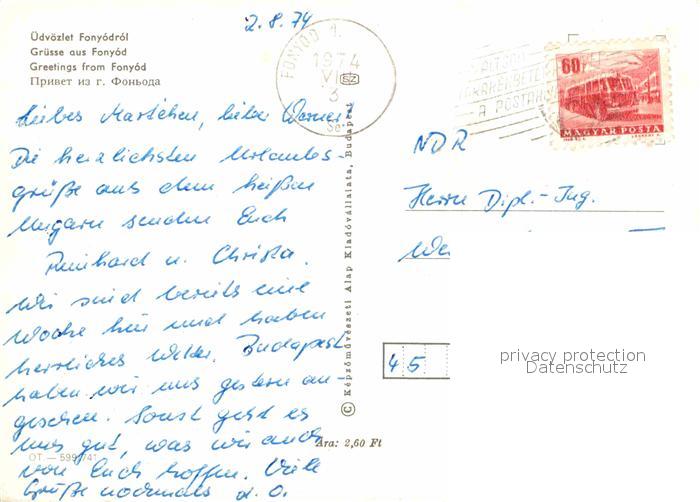 2.8.74
Üdvözlet Fonyódról
Grüsse aus Fonyód
Greetings from Fonyód
Привет из г. Фоньода
FONYÓD 1.
1974
VIII
3
SZ
60f
MAGYAR POSTA
Liebes Martchen, lieber Werner
Die herzlichsten Urlaubs-
grüße aus dem heißen
Ungarn senden Euch
Reinhard u. Christa.
Wir sind bereits eine
Woche hier und haben
herrliches Wetter. Budapest
haben wir uns gestern an
gesehen. Sonst geht es
uns gut, was wir auch
von Euch hoffen. Viele
Grüße nochmals d. O.
OT. — 599/741
Ára: 2,60 Ft
© Képzőművészeti Alap Kiadóvállalata, Budapest
NDR
Herrn Dipl.-Ing.
We
45
privacy protection
Datenschutz